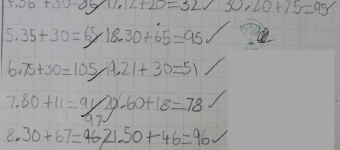 4.56+30=86 17.12+20=32 30.20+75=95
5.35+30=65 18.30+65=95
6.75+30=105 19.21+30=51
7.80+11=91 20.60+18=78
97
8.30+67=96 21.50+46=96